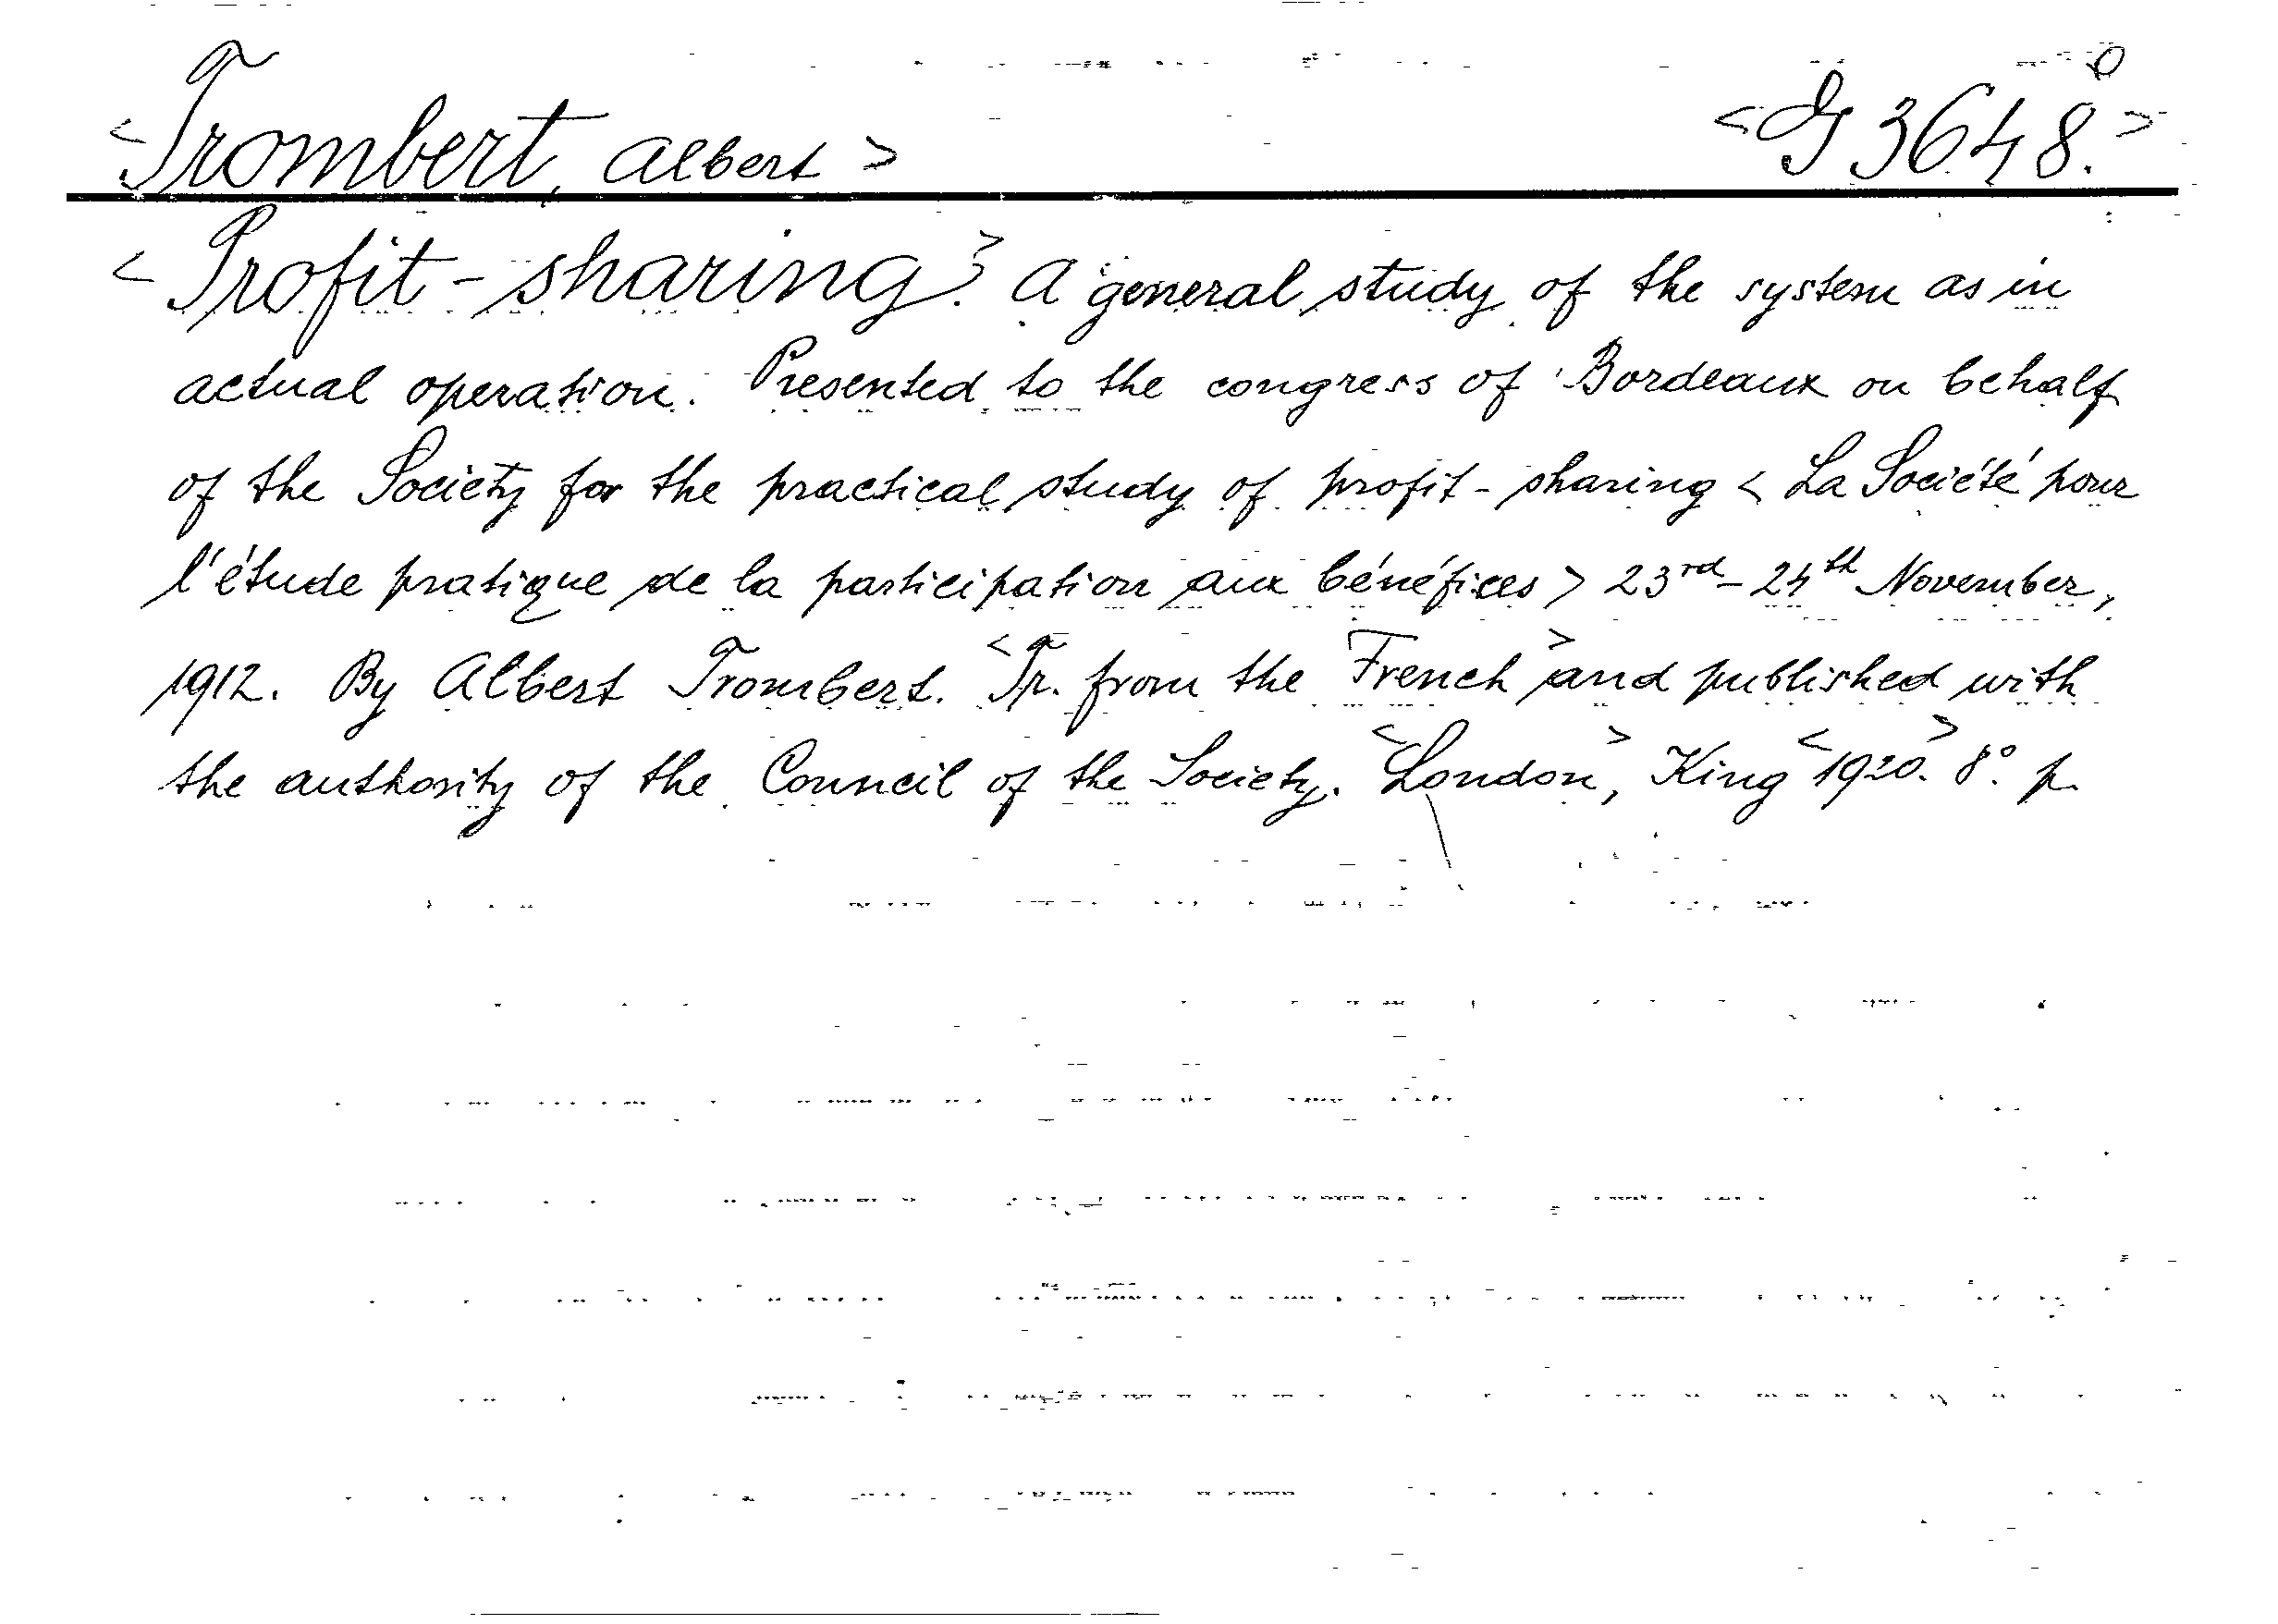 <Trombert, Albert> <G 3648.°>
<Profit-sharing.> A general study of the system as in
actual operation. Presented to the congress of Bordeaux on behalf
of the Society for the practical study of profit-sharing <La Société pour
l'étude pratique de la participation aux bénéfices> 23rd-24th November,
1912. By Albert Trombert. <Tr. from the French> and published with
the authority of the Council of the Society. <London>, King <1920.> 8°. p.